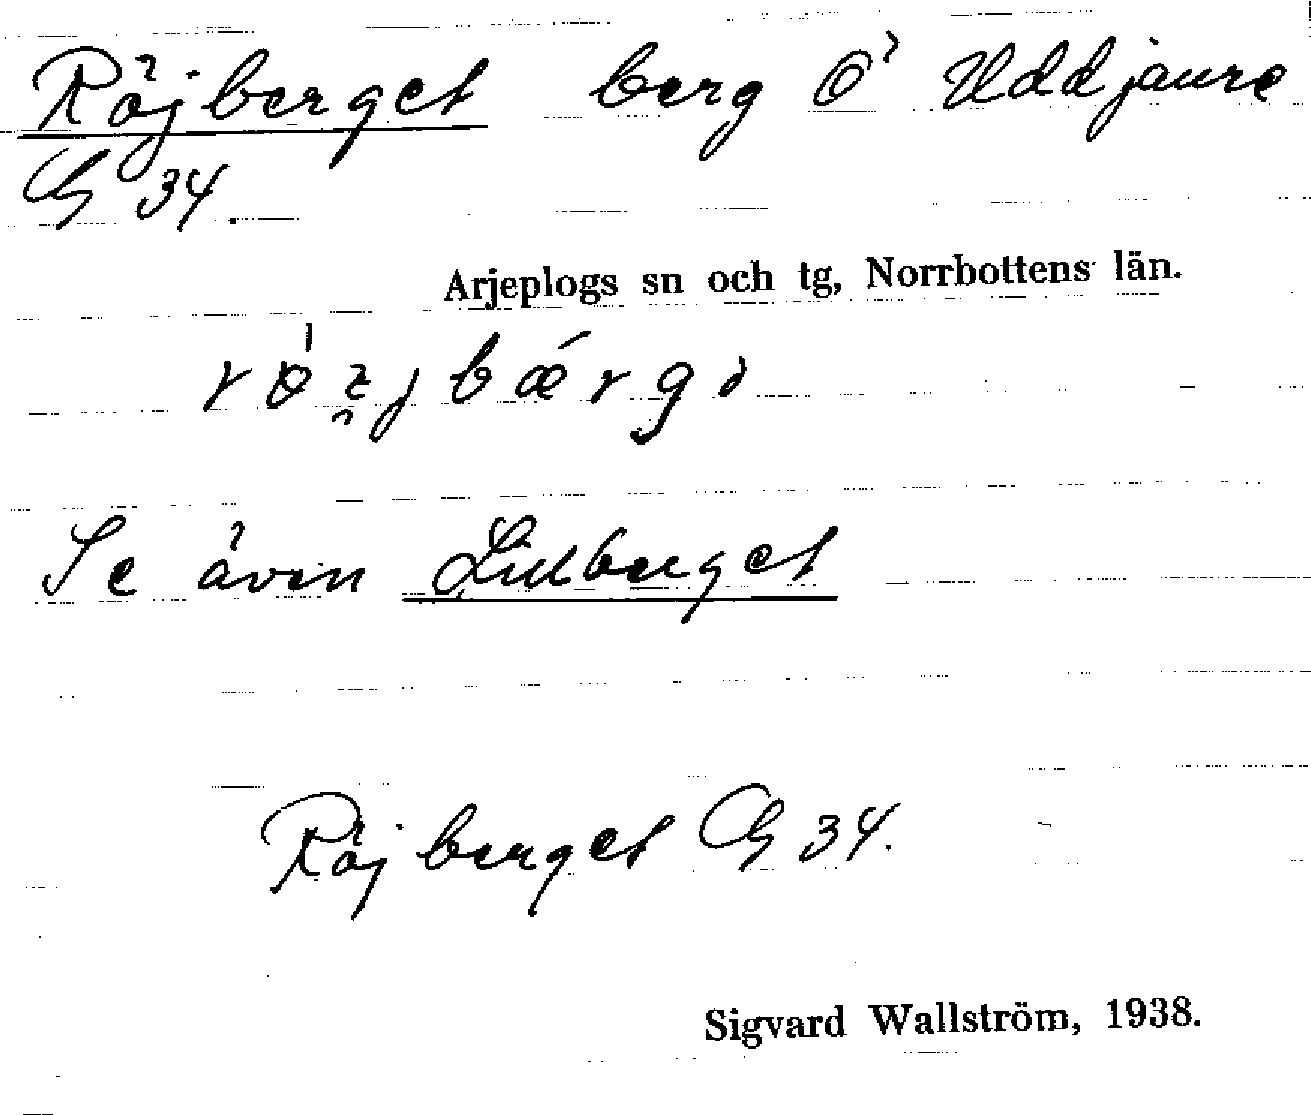 Röjberget berg Ö Uddjaure
G 34.
Arjeplogs sn och tg, Norrbottens län.
Se även Lidberget
Röjberget G 34.
Sigvard Wallström, 1938.